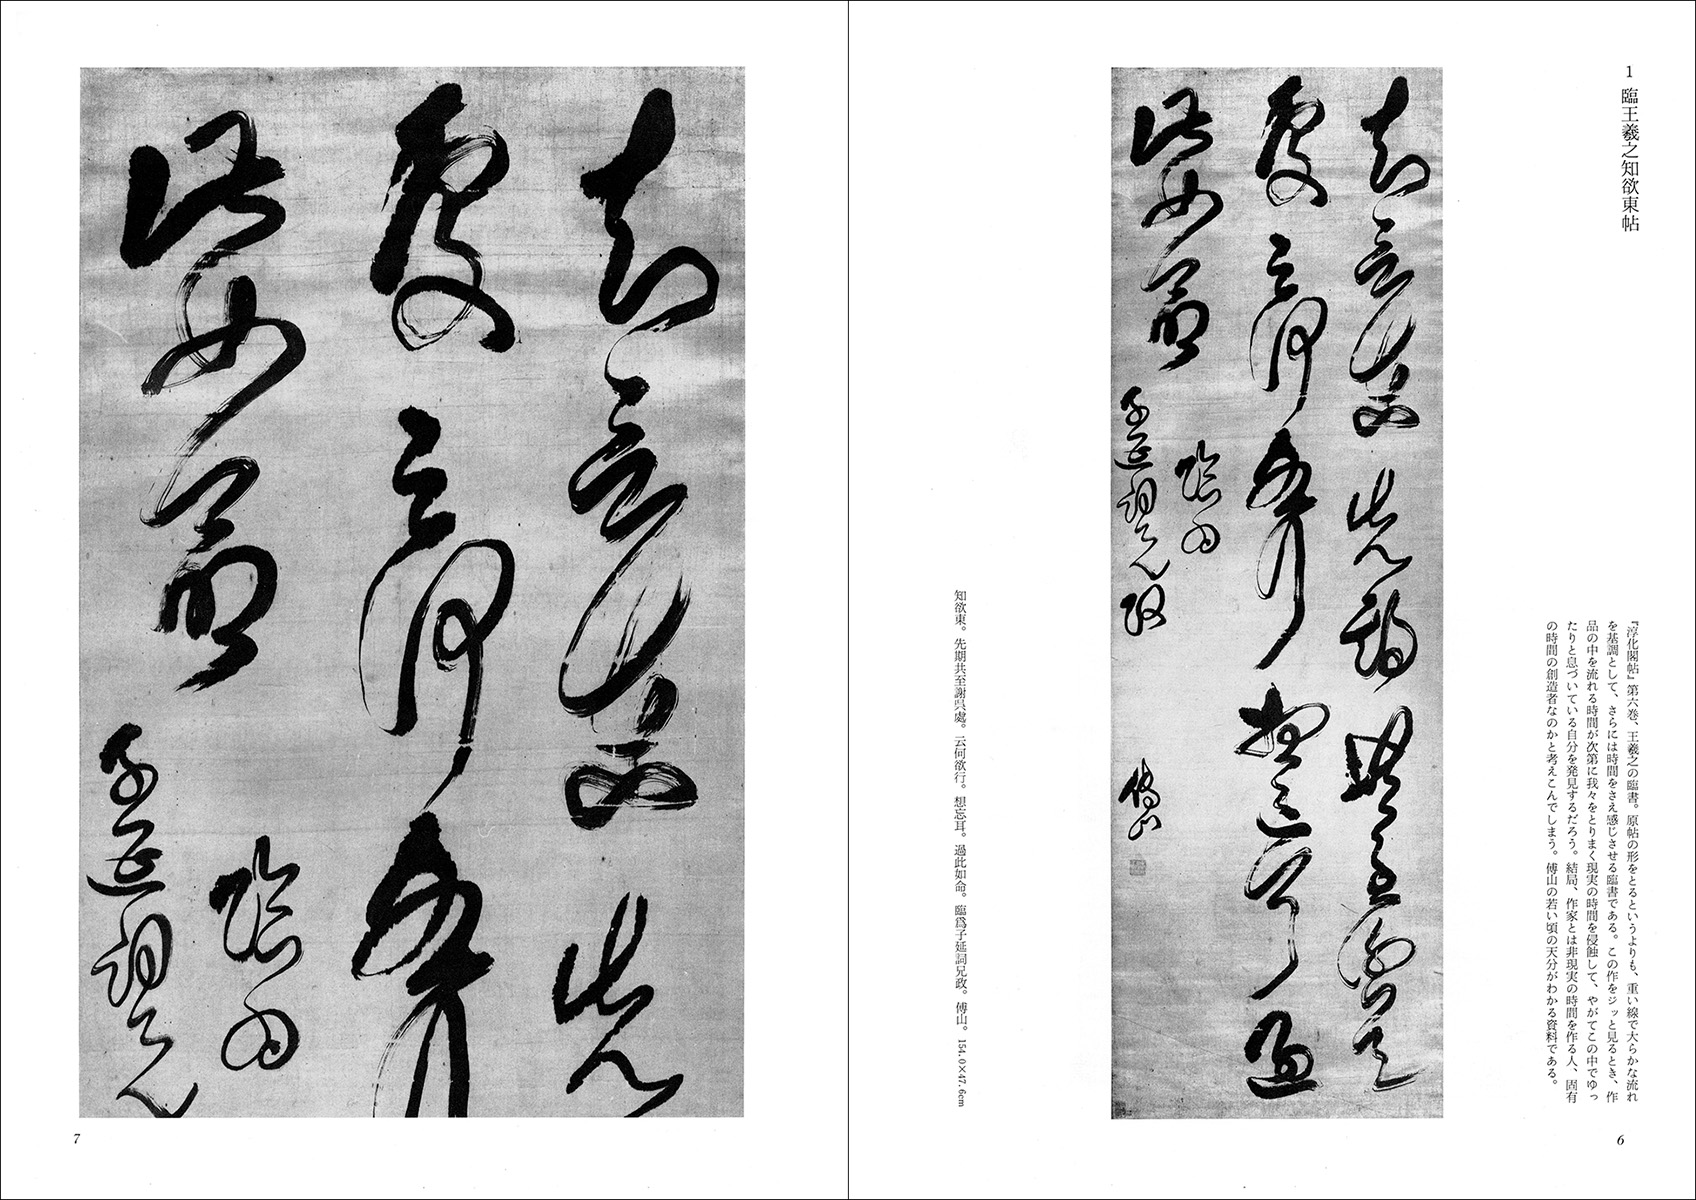 1 臨王羲之知欲東帖
『淳化閣帖』第六巻、王羲之の臨書。原帖の形をとるというよりも、重い線で大らかな流れ
を基調として、さらには時間をさえ感じさせる臨書である。この作をジッと見るとき、作
品の中を流れる時間が次第に我々をとりまく現実の時間を侵蝕して、やがてこの中でゆっ
たりと息づいている自分を発見するだろう。結局、作家とは非現実の時間を作る人、固有
の時間の創造者なのかと考えこんでしまう。傅山の若い頃の天分がわかる資料である。
知欲東先期共至謝呉
處云何欲行想忘耳過
此如命
臨爲
子延詞兄政
傅山
知欲東。先期共至謝呉處。云何欲行。想忘耳。過此如命。臨爲子延詞兄政。傅山。 154.0×47.6cm
6
知欲東先
處云何欲行
此如命
臨爲
子延詞兄
7